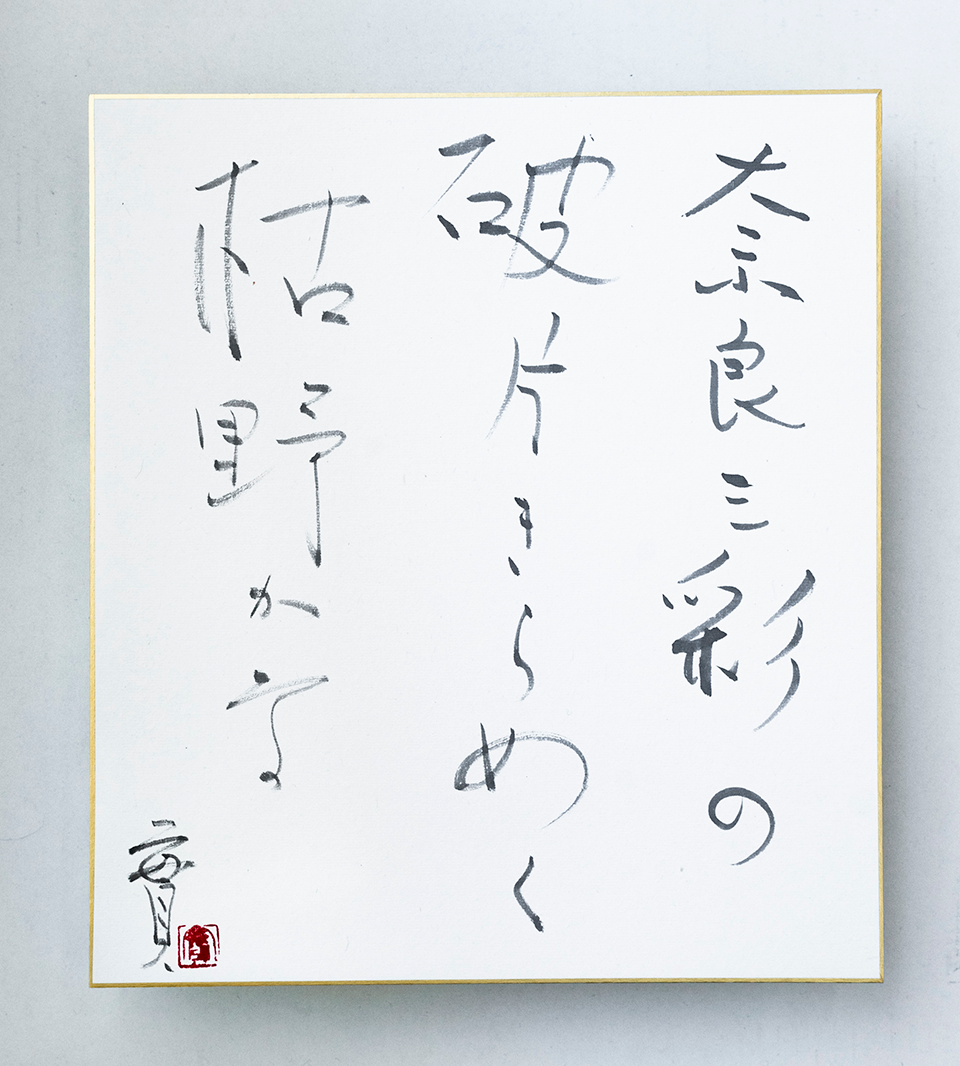 奈良三彩の
破片きらめく
枯野かな
實